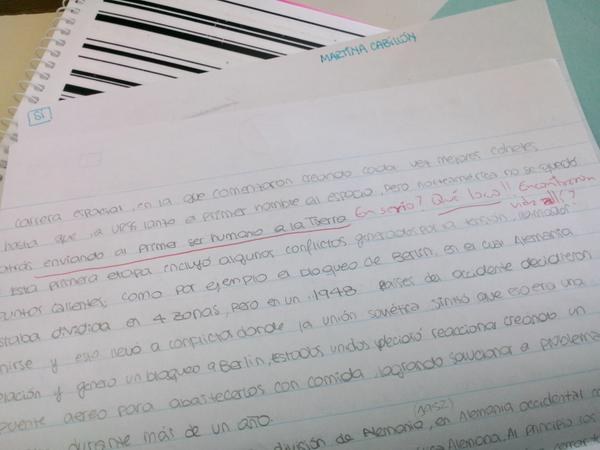 MARTINA CABILLÓN
51
carrera espacial, en la que comentaron creando cada vez mejores cohetes
hasta que la URSS lanto a primer hombre al espacio, pero norteamérica no se quedó
atrás enviando al primer ser humano a la Tierra En serio? Qué loco!! Encontraron
vida allí?
Esta primera etapa incluyó algunos conflictos generados por a tensión, llamados
puntos calientes; como por ejemplo el bloqueo de Berlín, en el cual Alemania
estaba dividida en 4 zonas, pero en un 1948 países de accidente decidieron
unirse y eso llevó a conflicto donde la unión soviética sintió que eso era una
y genero un bloqueo a Berlin, estados unidos decidió reaccionar creando un
puente aereo para abastecerlos con comida, logrando solucionar a problema
durante más de un año.
(1952)
división de Alemania, en Alemania accidental
Alemana. Al principio los